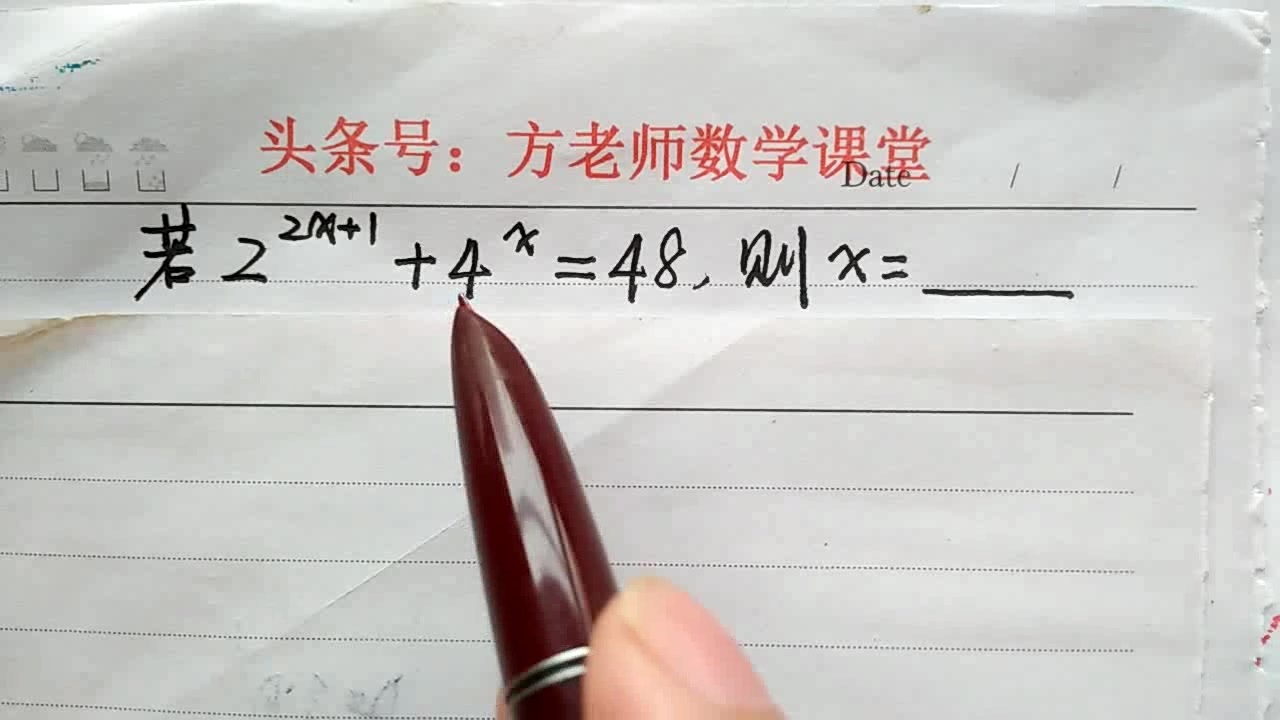 头条号：方老师数学课堂
Date / /
若 2^{2x+1} + 4^x = 48, 则 x = ____